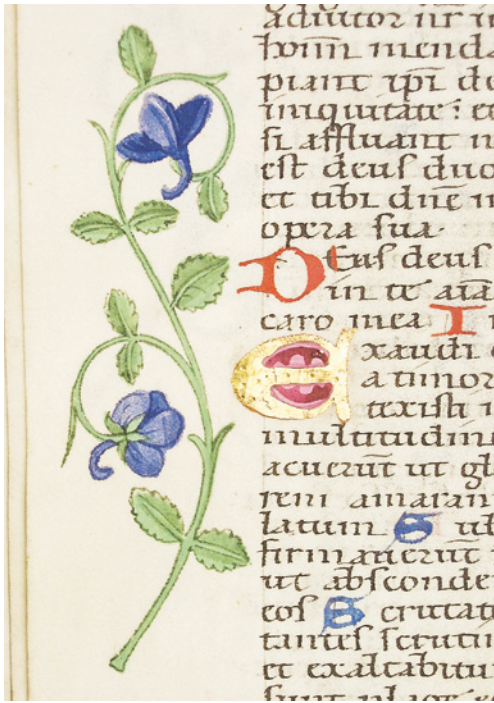 adiutor nr̄ i
hoīm menda
piant ip̄i de
iniquitate : et
si affluant n
est deus duo
et tibi dn̄e m
opera sua ·
Deus deus
in te aīa
caro mea I
Exaudi
a timor
texisti
multitudin
acuerūt ut gl
rem amaram
latum Sub
firmauerūt
ut absconde
eos Scrutat
tantes scrutin
et exaltabitu